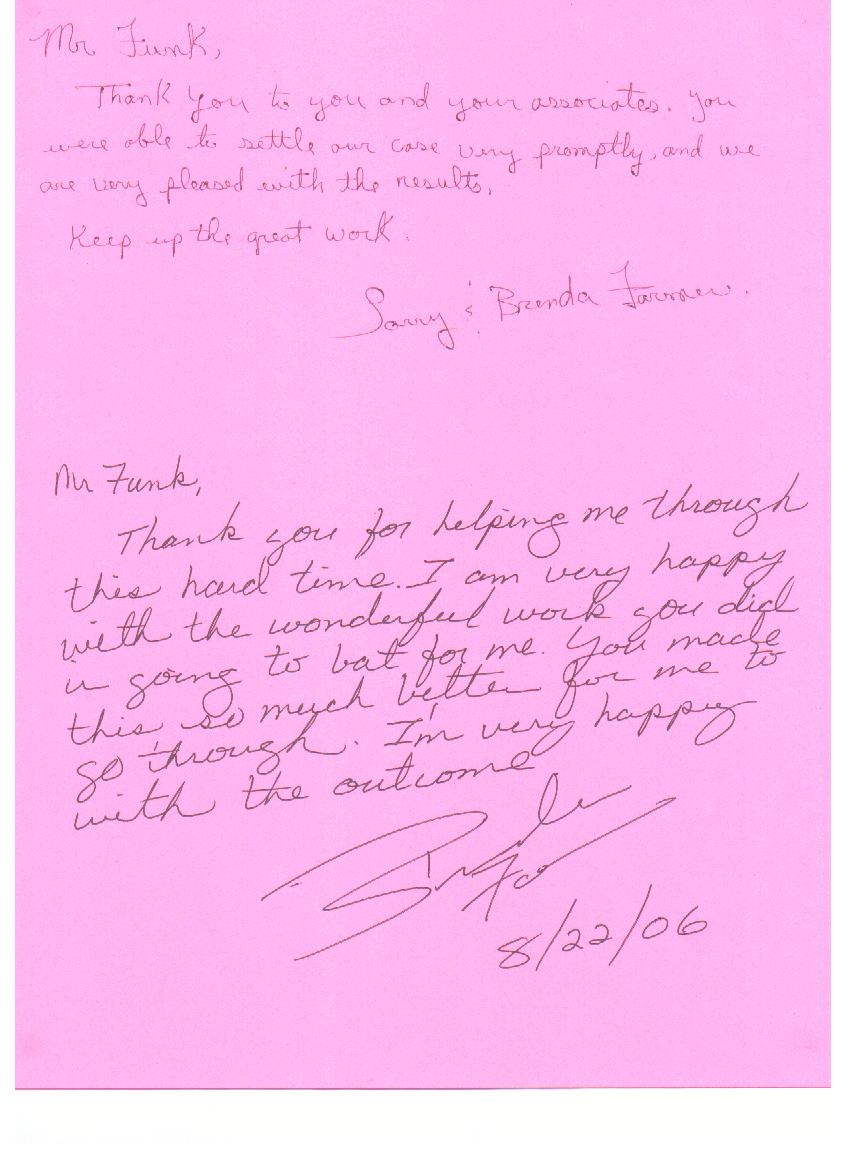 Mr Funk,
Thank You to you and your associates. You
were able to settle our case very promptly, and we
are very pleased with the results,
Keep up the great work.
& Brenda Farmer.
Mr Funk,
Thank you for helping me through
this hard time. I am very happy
with the wonderful work you did
in going to bat for me. You made
this so much better for me to
go through. I'm very happy
with the outcome
8/22/06